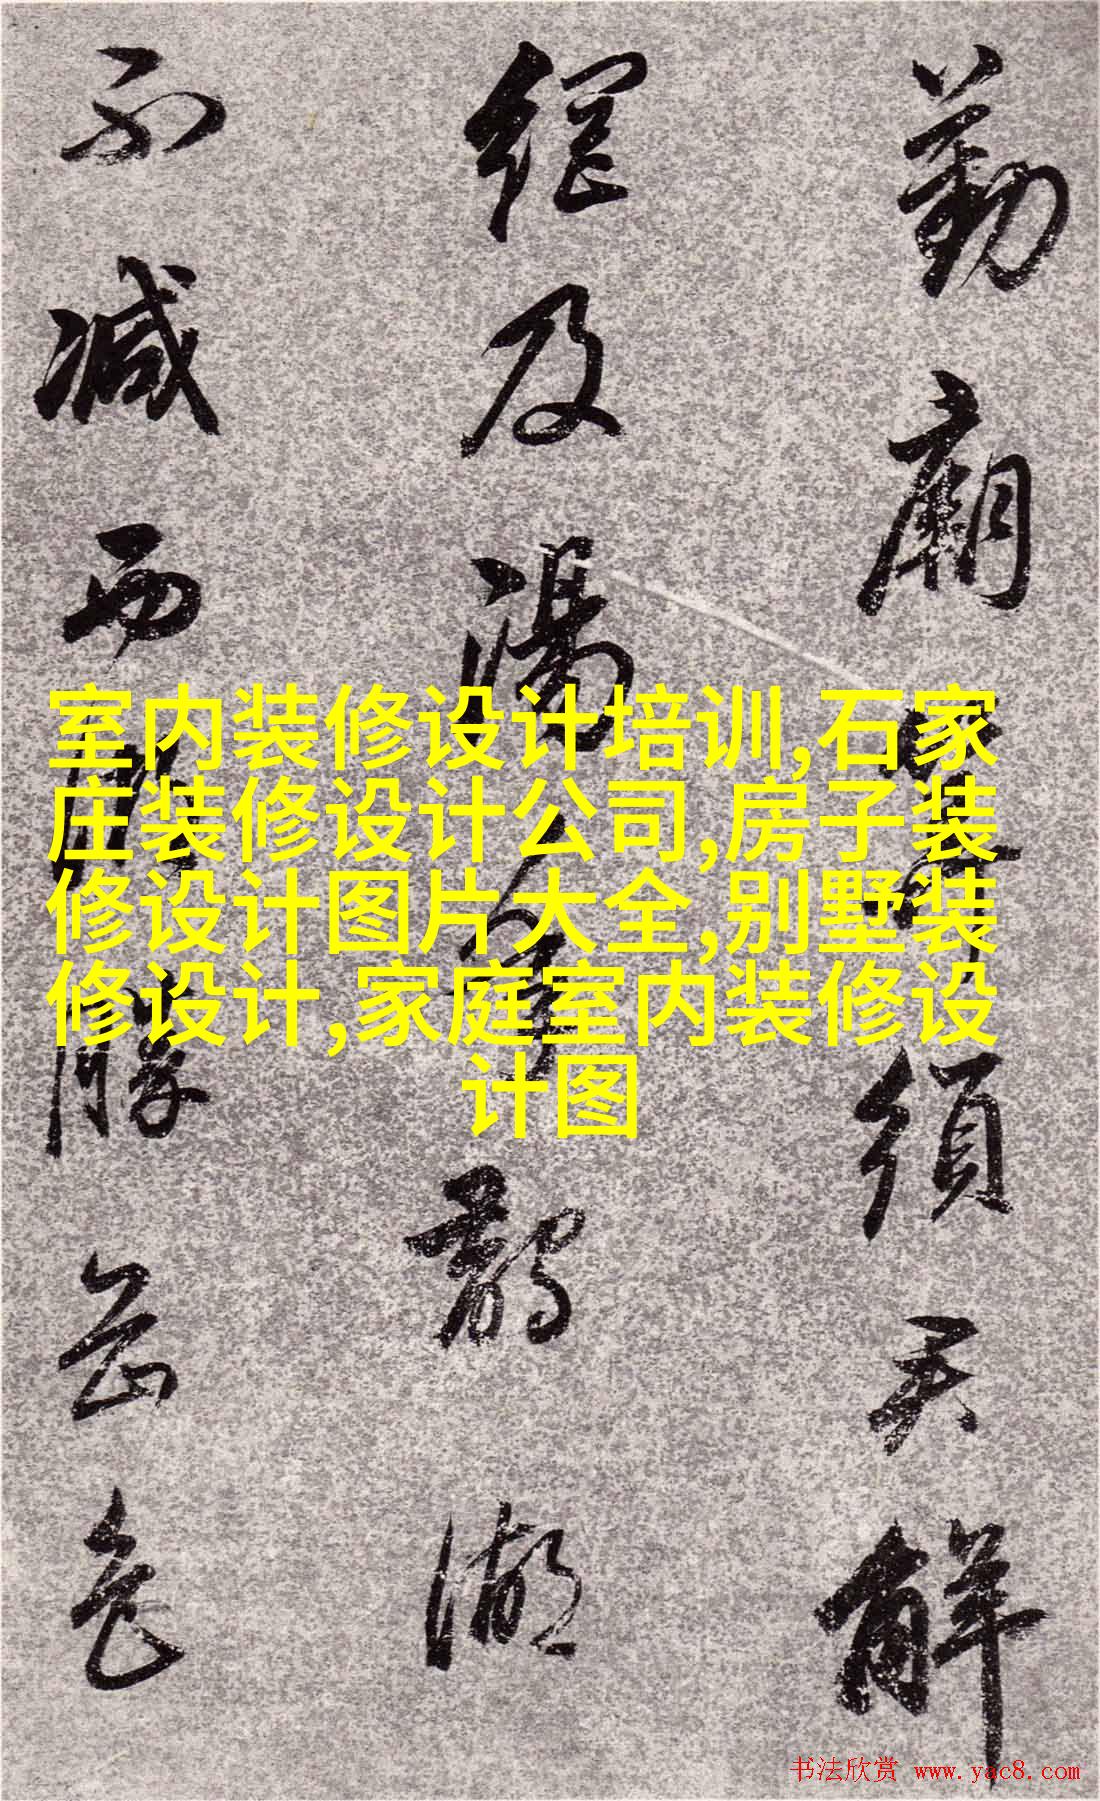 勤廟算須君解
經及湯
鵲湖
不減西
勝岳色
室内装修设计培训,石家
庄装修设计公司,房子装
修设计图片大全,别墅装
修设计,家庭室内装修设
计图
书法欣赏 www.yac8.com